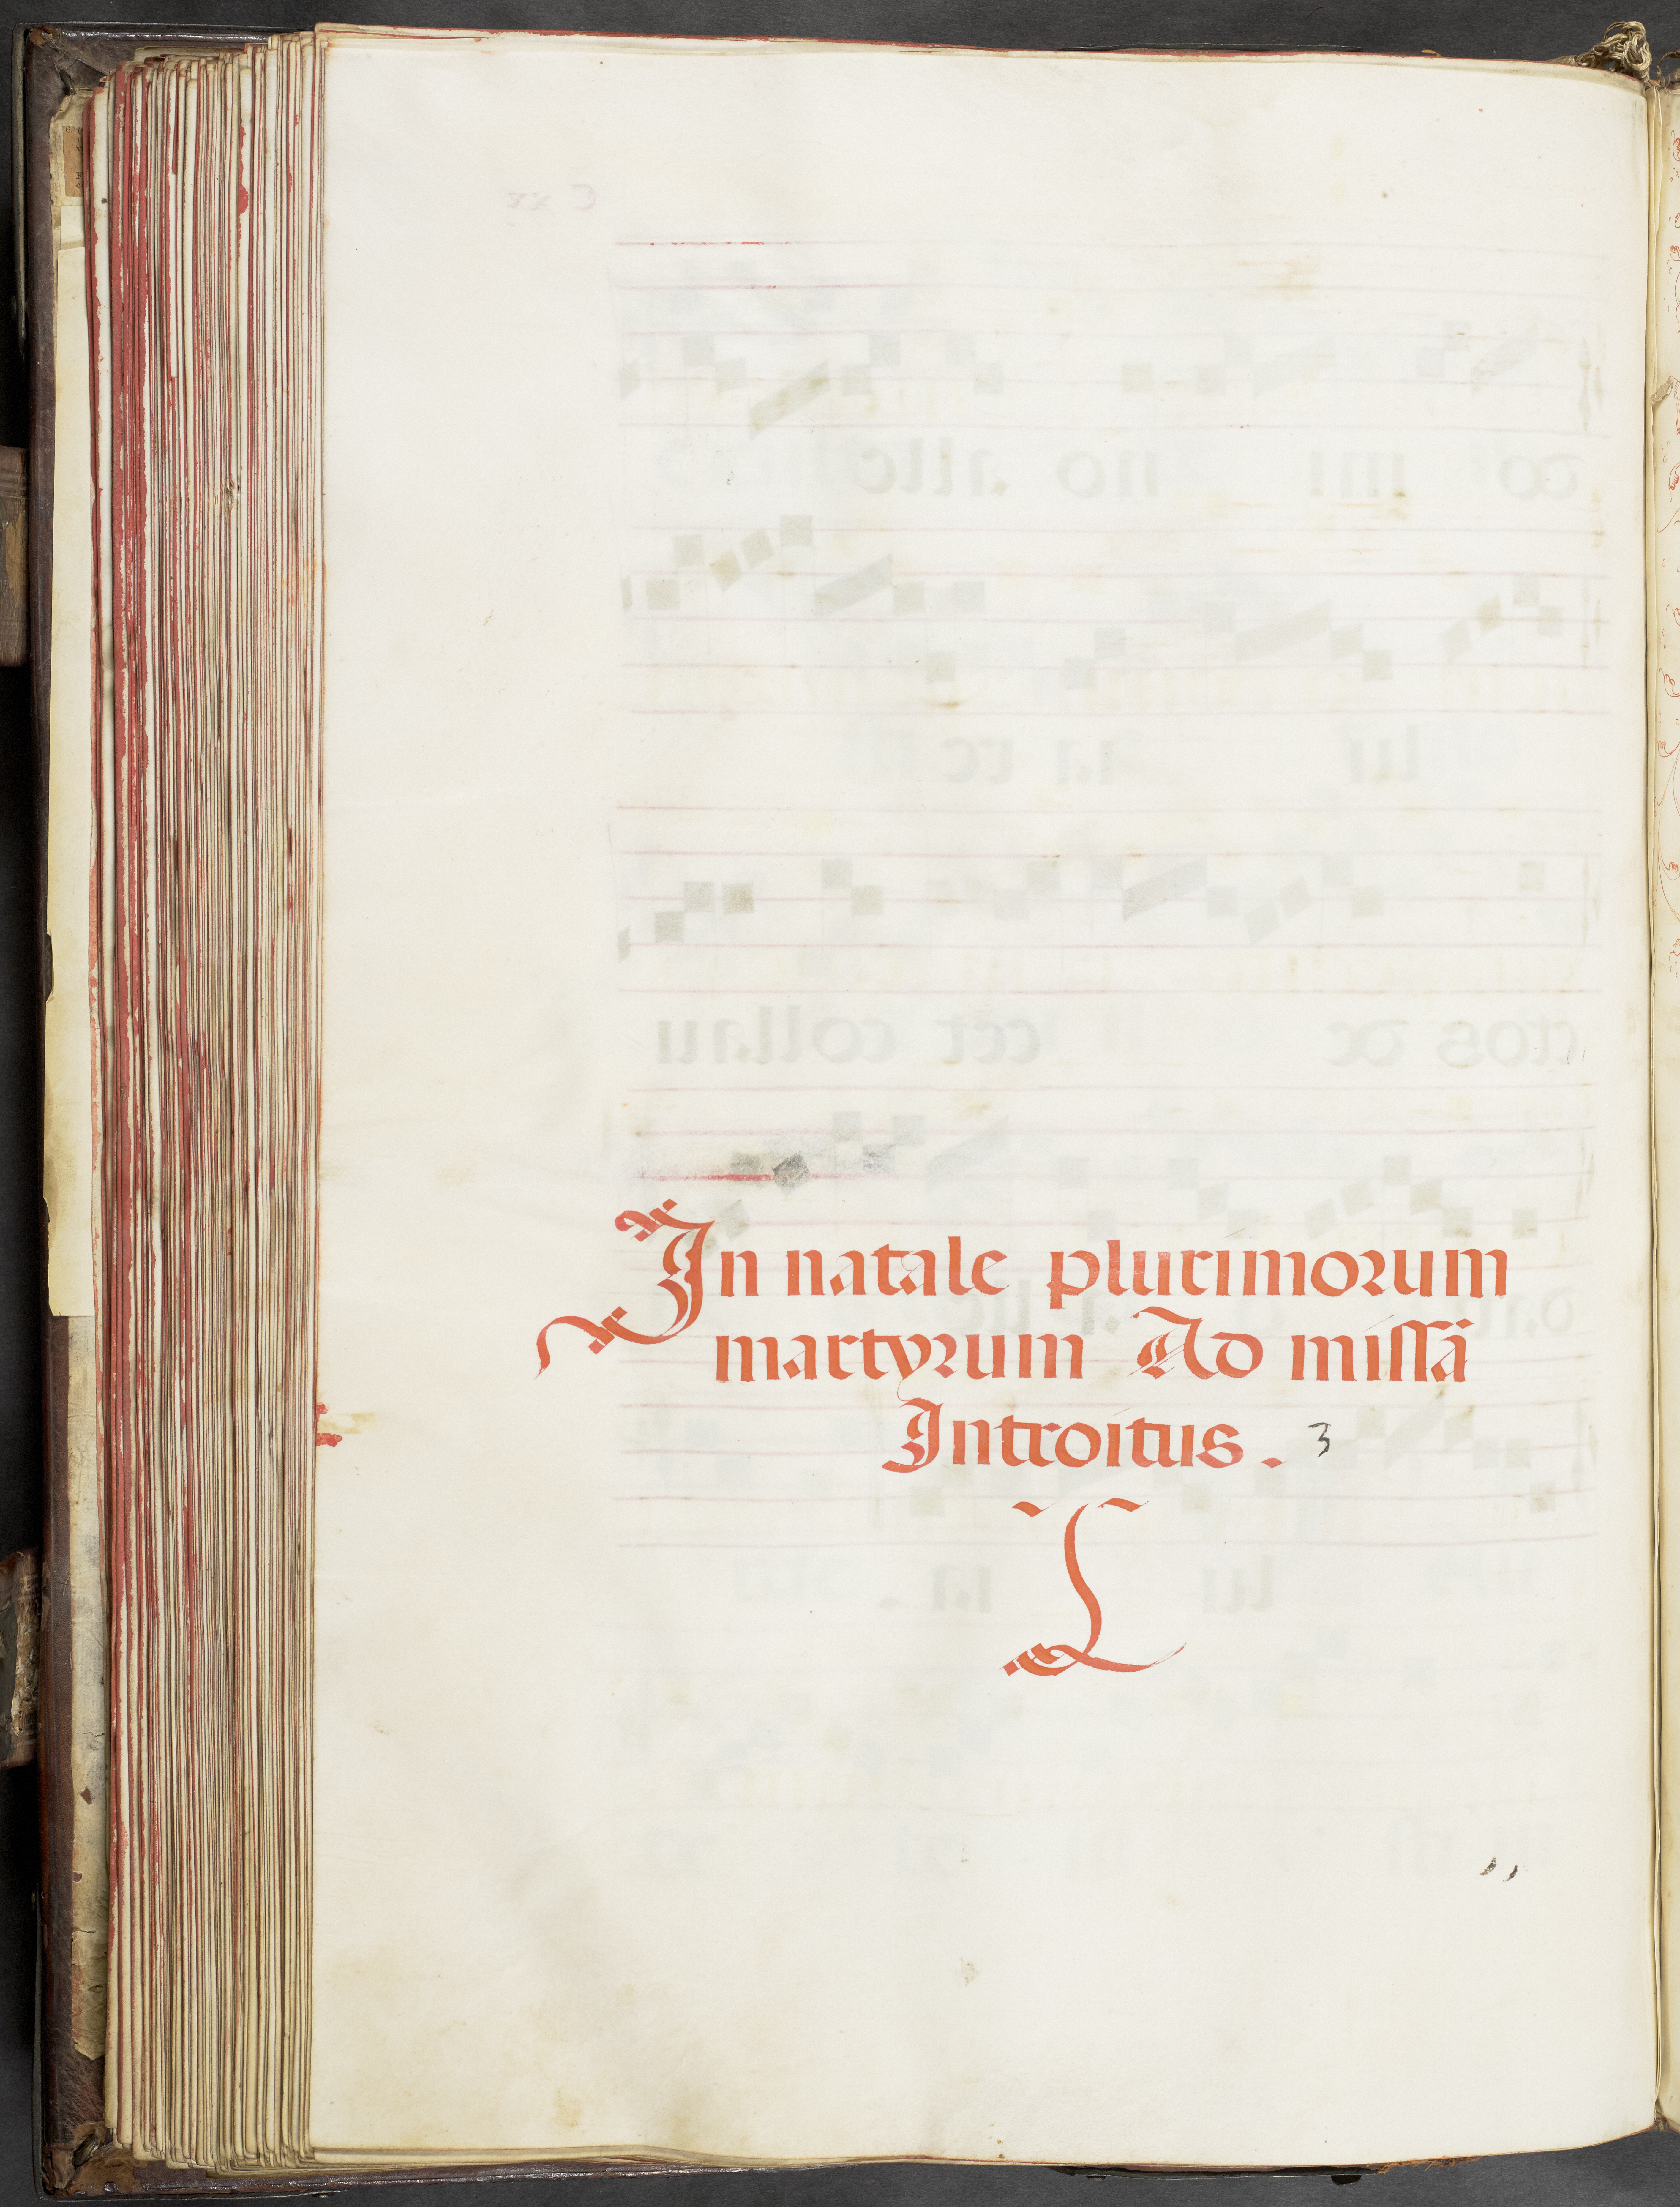 In natale plurimorum
martyrum Ad missã
Introitus . 3